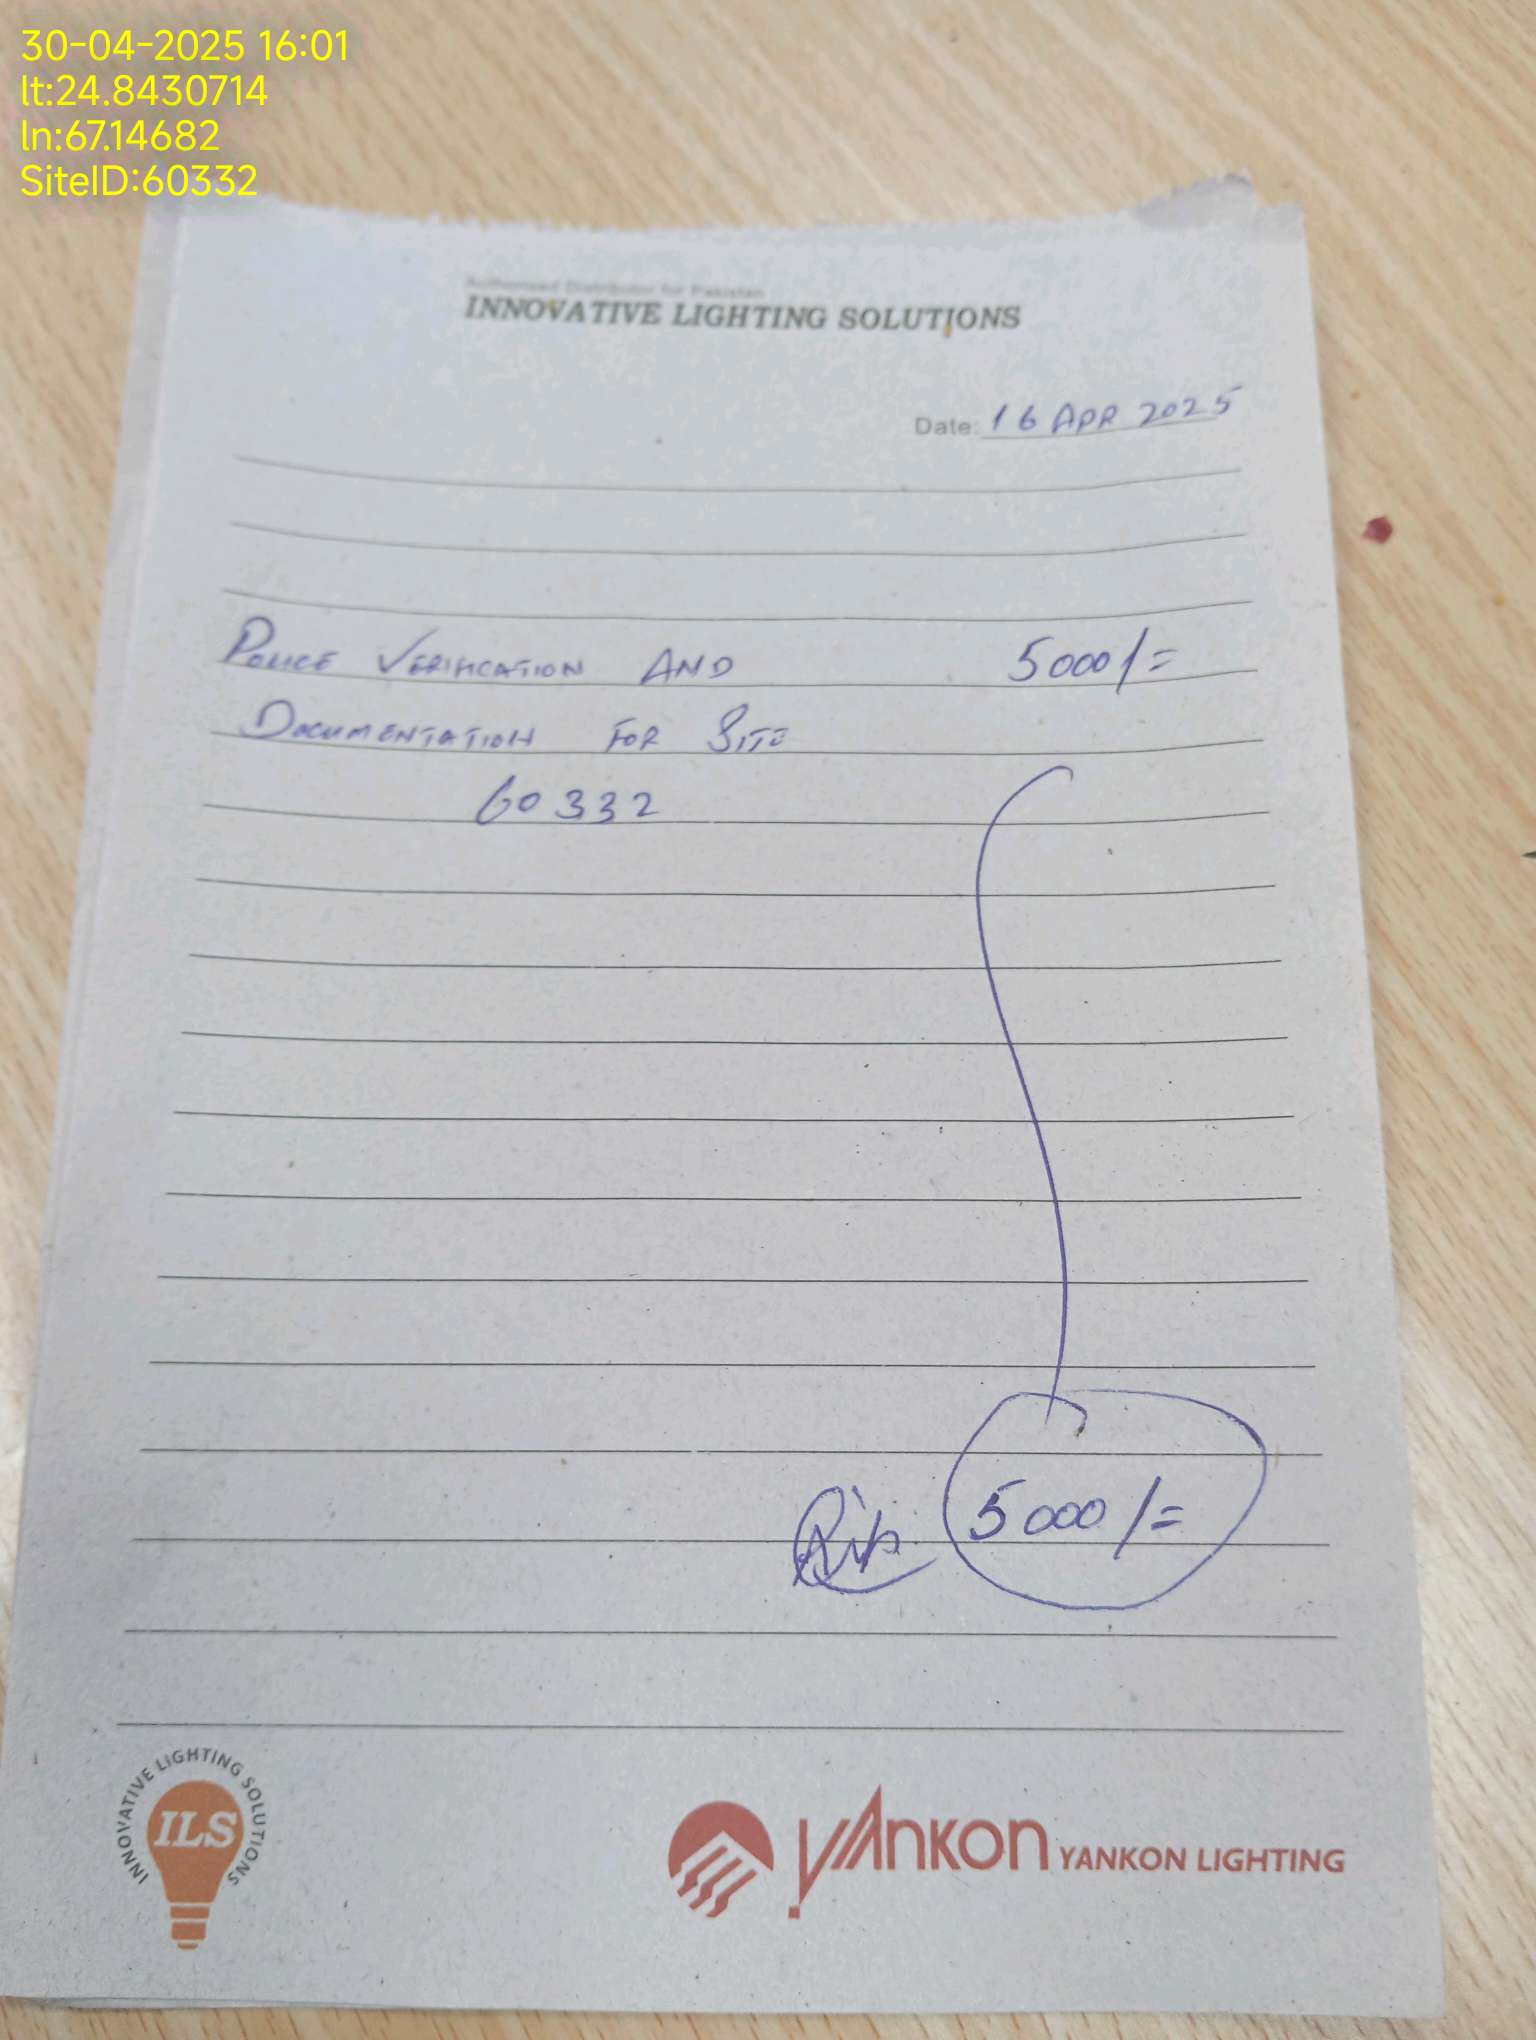 30-04-2025 16:01
lt:24.8430714
ln:67.14682
SiteID:60332
Authorised Distributor for Pakistan
INNOVATIVE LIGHTING SOLUTIONS
Date: 16 APR 2025
POLICE VERIFICATION AND 5000/=
DOCUMENTATION FOR SITE
60332
5000/=
INNOVATIVE LIGHTING SOLUTIONS
ILS
YANKON YANKON LIGHTING